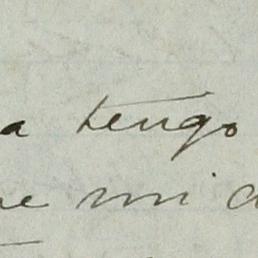 a tengo
e mi